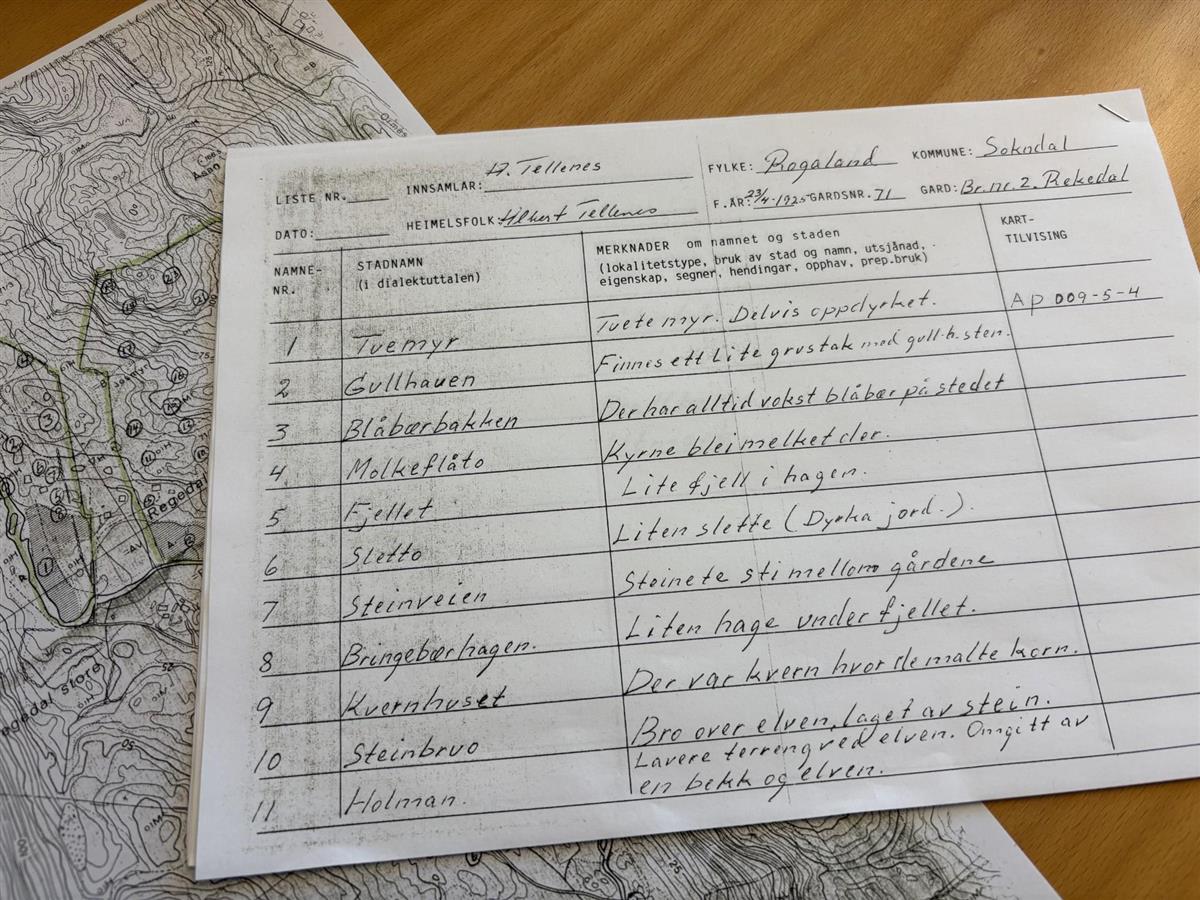 LISTE NR.
INNSAMLAR: A. Tellenes
FYLKE: Rogaland
KOMMUNE: Sokndal
DATO:
HEIMELSFOLK: Albert Tellenes
F.ÅR: 23/4-1925 GARDSNR. 71
GARD: Br.nr. 2. Rekedal
NAMNE-
NR.
STADNAMN
(i dialektuttalen)
MERKNADER om namnet og staden
(lokalitetstype, bruk av stad og namn, utsjånad,
eigenskap, segner, hendingar, opphav, prep.bruk)
KART-
TILVISING
1 Tvemyr Tvetemyr. Delvis oppdyrket. Ap 009-5-4
2 Gullhauen Finnes ett lite grustak med gull.h.sten.
3 Blåbærbakken Der har alltid vokst blåbær på stedet
4 Molkeflåto Kyrne blei melket der.
5 Fjellet Lite fjell i hagen.
6 Sletto Liten slette (Dyrka jord.).
7 Steinveien Steinete sti mellom gårdene
8 Bringebærhagen. Liten hage under fjellet.
9 Kvernhuset Der var kvern hvor de malte korn.
10 Steinbruo Bro over elven, laget av stein.
11 Holman. Lavere terreng ved elven. Omgitt av
en bekk og elven.
Regedal
Regedal store